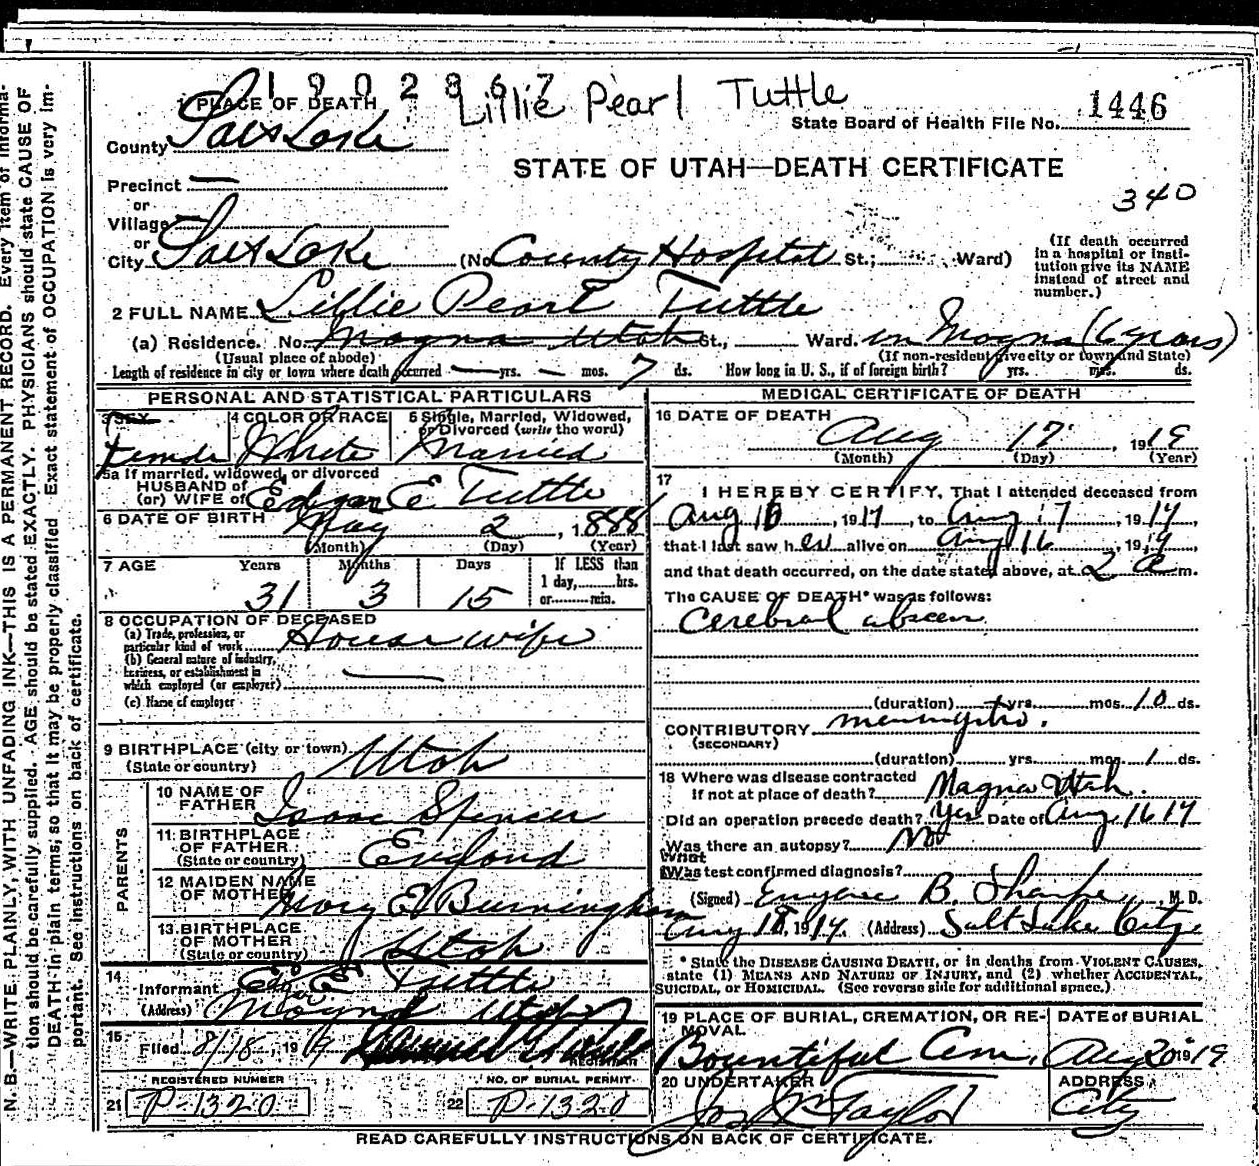 1902867
Lillie Pearl Tuttle
1 PLACE OF DEATH
State Board of Health File No. 1446
County Salt Lake
STATE OF UTAH—DEATH CERTIFICATE
Precinct —
340
or
Village —
or
City Salt Lake (No County Hospital St.; Ward)
(If death occurred in a hospital or institution give its NAME instead of street and number.)
2 FULL NAME Lillie Pearl Tuttle
(a) Residence. No. Magna Utah St., Ward. in Magna (6 years)
(Usual place of abode) (If non-resident give city or town and State)
Length of residence in city or town where death occurred — yrs. — mos. 7 ds. How long in U. S., if of foreign birth? yrs. mos. ds.
PERSONAL AND STATISTICAL PARTICULARS
3 SEX
Female
4 COLOR OR RACE
White
5 Single, Married, Widowed, or Divorced (write the word)
Married
5a If married, widowed, or divorced
HUSBAND of
(or) WIFE of Edgar E Tuttle
6 DATE OF BIRTH May 2, 1888
(Month) (Day) (Year)
7 AGE Years Months Days If LESS than
1 day, hrs.
or min.
31 3 15
8 OCCUPATION OF DECEASED
(a) Trade, profession, or
particular kind of work Housewife
(b) General nature of industry,
business, or establishment in
which employed (or employer) —
(c) Name of employer
9 BIRTHPLACE (city or town) Utah
(State or country)
PARENTS
10 NAME OF FATHER Isaac Spencer
11 BIRTHPLACE OF FATHER England
(State or country)
12 MAIDEN NAME OF MOTHER Mary E Burningham
13 BIRTHPLACE OF MOTHER Utah
(State or country)
14 Informant E E Tuttle
(Address) Magna Utah
15 Filed 8/18, 1919
REGISTRAR
REGISTERED NUMBER NO. OF BURIAL PERMIT
21 P-1320 22 P-1320
MEDICAL CERTIFICATE OF DEATH
16 DATE OF DEATH
Aug 17 1919
(Month) (Day) (Year)
17 I HEREBY CERTIFY, That I attended deceased from
Aug 16, 1919, to Aug 17, 1919,
that I last saw her alive on Aug 16, 1919,
and that death occurred, on the date stated above, at 2 a m.
The CAUSE OF DEATH* was as follows:
Cerebral abscess
(duration) yrs. mos. 10 ds.
CONTRIBUTORY meningitis.
(SECONDARY)
(duration) yrs. mos. 1 ds.
18 Where was disease contracted
If not at place of death? Magna Utah.
Did an operation precede death? Yes Date of Aug. 16 19
Was there an autopsy? No
What
Was test confirmed diagnosis?
(Signed) Eugene B. Sharpe, M. D.
Aug 18, 1919. (Address) Salt Lake City
* State the DISEASE CAUSING DEATH, or in deaths from VIOLENT CAUSES,
state (1) MEANS AND NATURE OF INJURY, and (2) whether ACCIDENTAL,
SUICIDAL, or HOMICIDAL. (See reverse side for additional space.)
19 PLACE OF BURIAL, CREMATION, OR REMOVAL
Bountiful Cem.
DATE of BURIAL
Aug 20 1919
20 UNDERTAKER
Jos Wm Taylor
ADDRESS
City
READ CAREFULLY INSTRUCTIONS ON BACK OF CERTIFICATE.
N. B.—WRITE PLAINLY, WITH UNFADING INK—THIS IS A PERMANENT RECORD. Every item of informa-
tion should be carefully supplied. AGE should be stated EXACTLY. PHYSICIANS should state CAUSE OF
DEATH in plain terms, so that it may be properly classified. Exact statement of OCCUPATION is very im-
portant. See instructions on back of certificate.